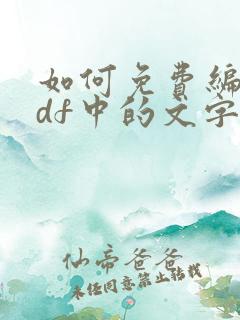 如何免费编
df中的文字
仙帝爸爸
未经同意禁止转载